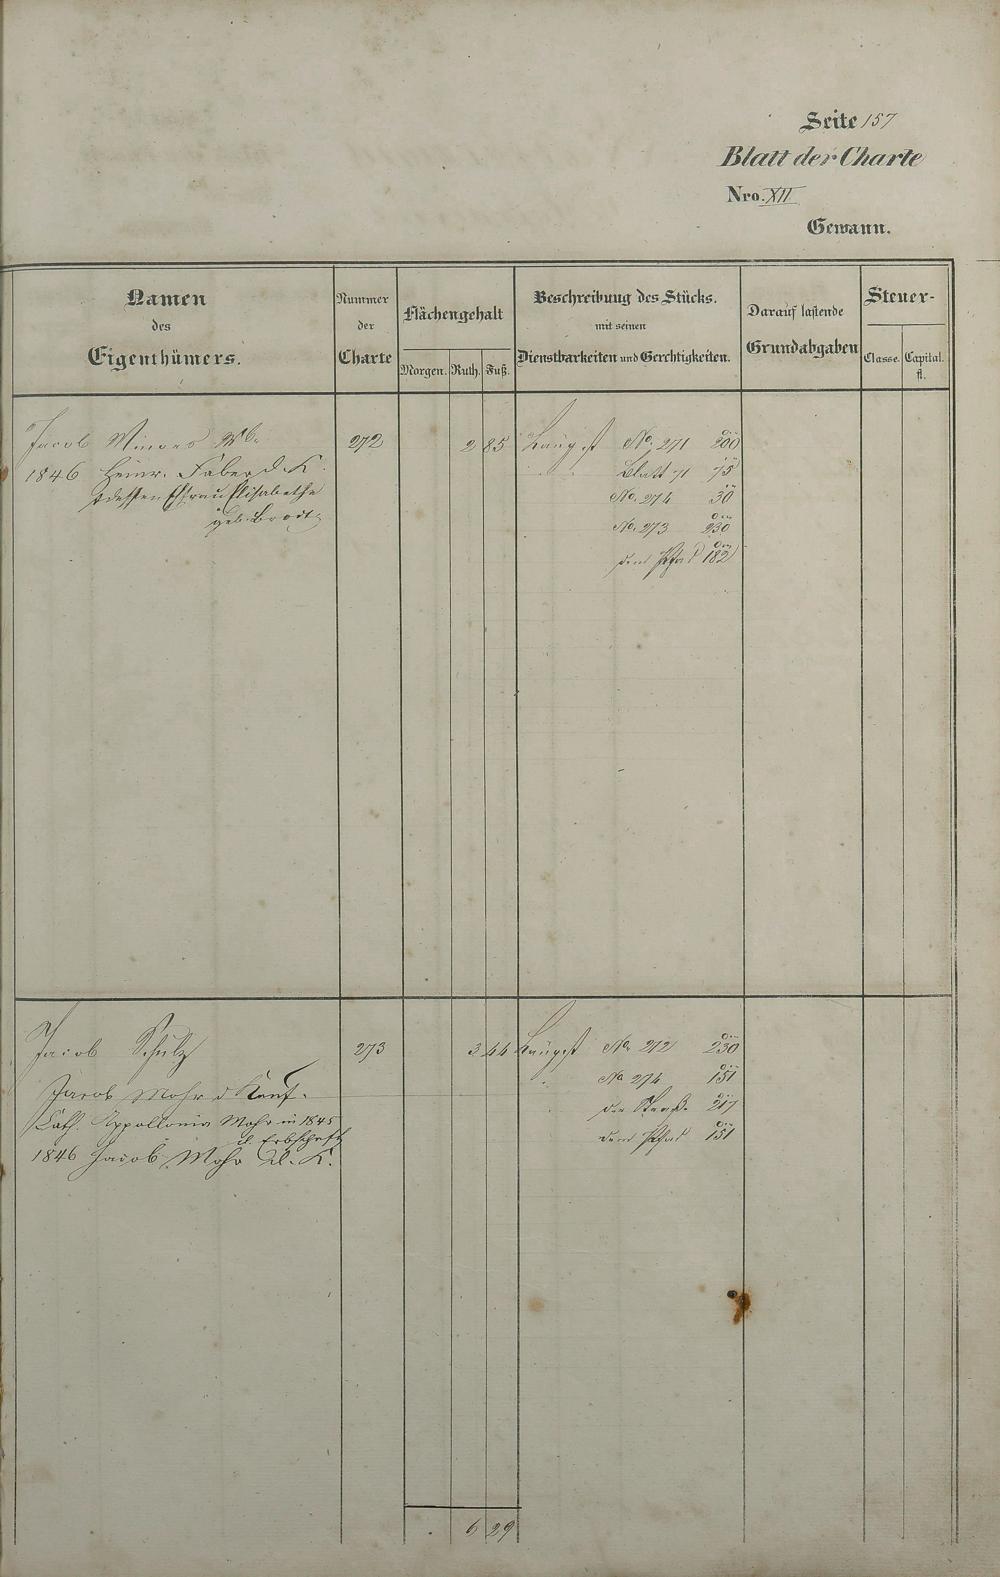 Seite 157
Blatt der Charte
Nro. XII
Gewann.
Namen
des
Eigenthümers.
Nummer
der
Charte
Flächengehalt
Morgen. Ruth. Fuß.
Beschreibung des Stücks.
mit seinen
Dienstbarkeiten und Gerechtigkeiten.
Darauf lastende
Grundabgaben
Steuer-
Classe. Capital.
fl.
Jacob 272 2 85 No. 271 200
1846 Heinr. Faber d. K. Blatt 71 75
Elisabethe No. 274 30
geb. No. 273 230
dem Pfad 182
Jacob Schulz 273 3 44 No. 272 230
No 274 151
Jacob Mohr d Kauf.
die Straße 217
Cath. Appollonia Mohr in 1845
d. Erbschaft dem Pfad 151
1846 Jacob Mohr d. K.
6 29